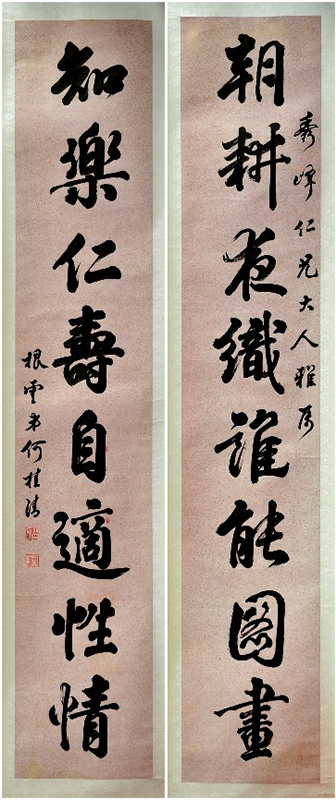 秀峰仁兄大人雅屬
朝耕夜織誰能圖畫
知樂仁壽自適性情
根雲弟何桂清